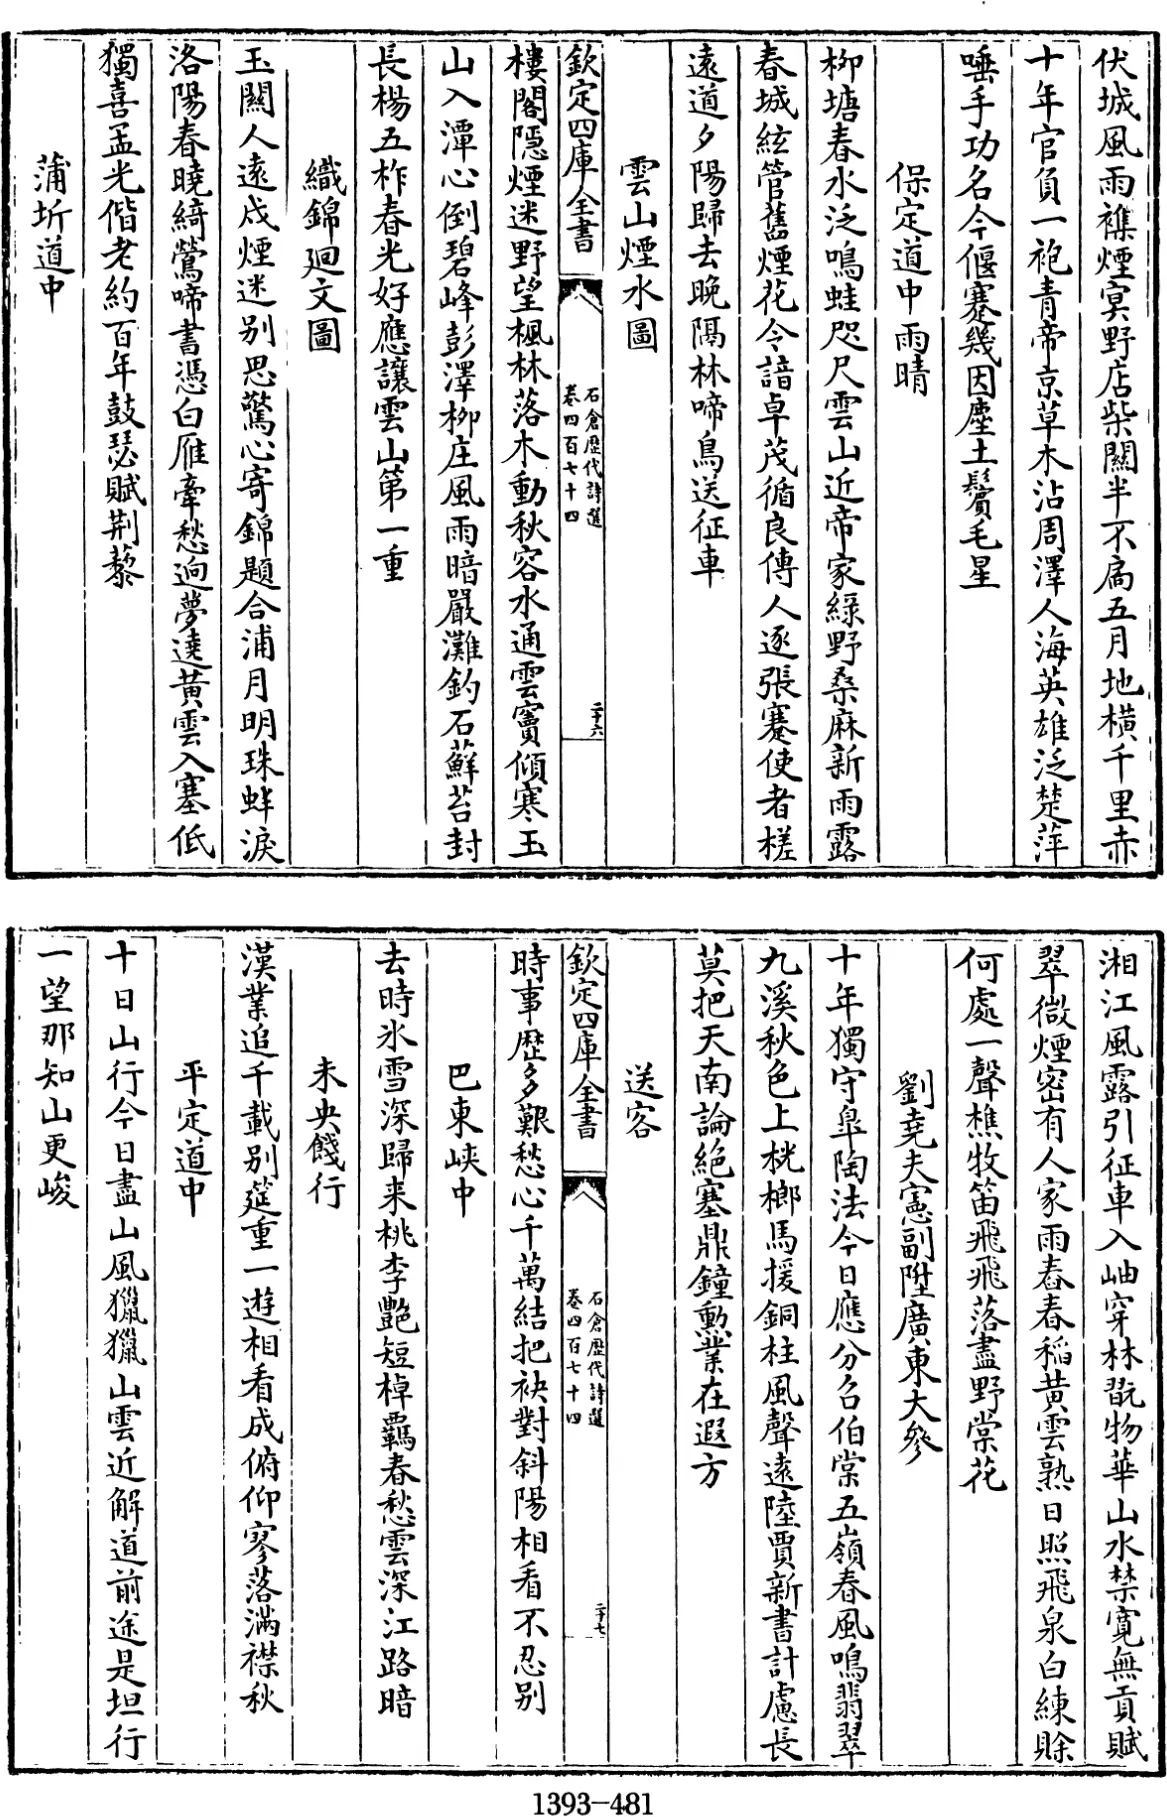 伏城風雨襍煙㝠野店柴關半不扄五月地横千里赤
十年官負一袍青帝京草木沾周澤人海英雄泛楚萍
唾手功名今偃蹇幾因塵土鬢毛星
保定道中雨晴
栁塘春水泛鳴蛙咫尺雲山近帝家緑野桑麻新雨露
春城絃管舊煙花令諳卓茂循良傳人逐張蹇使者槎
逺道夕陽歸去晚隔林啼鳥送征車
雲山煙水圖
欽定四庫全書
石倉歴代詩選
卷四百七十四
二十六
樓閣隠煙迷野望楓林落木動秋容水通雲竇傾寒玉
山入潭心倒碧峰彭澤栁庄風雨暗嚴灘釣石蘚苔封
長楊五柞春光好應讓雲山第一重
織錦廻文圖
玉關人逺戍煙迷别思驚心寄錦題合浦月明珠蚌淚
洛陽春曉綺鶯啼書憑白雁牽愁逈夢遶黄雲入塞低
獨喜孟光偕老約百年鼓瑟賦荆藜
蒲圻道中
湘江風露引征車入岫穿林翫物華山水禁寛無貢賦
翠微煙密有人家雨舂春稲黄雲熟日照飛泉白練賒
何處一聲樵牧笛飛飛落盡野棠花
劉堯夫憲副陞廣東大叅
十年獨守臯陶法今日應分召伯棠五嶺春風鳴翡翠
九溪秋色上桄榔馬援銅柱風聲逺陸賈新書計慮長
莫把天南論絶塞鼎鐘勲業在遐方
送客
欽定四庫全書
石倉歴代詩選
卷四百七十四
二十七
時事歴多艱愁心千萬結把袂對斜陽相看不忍别
巴東峽中
去時氷雪深歸来桃李艷短棹羈春愁雲深江路暗
未央餞行
漢業追千載别筵重一遊相看成俯仰寥落滿襟秋
平定道中
十日山行今日盡山風獵獵山雲近解道前途是坦行
一望那知山更峻
1393-481